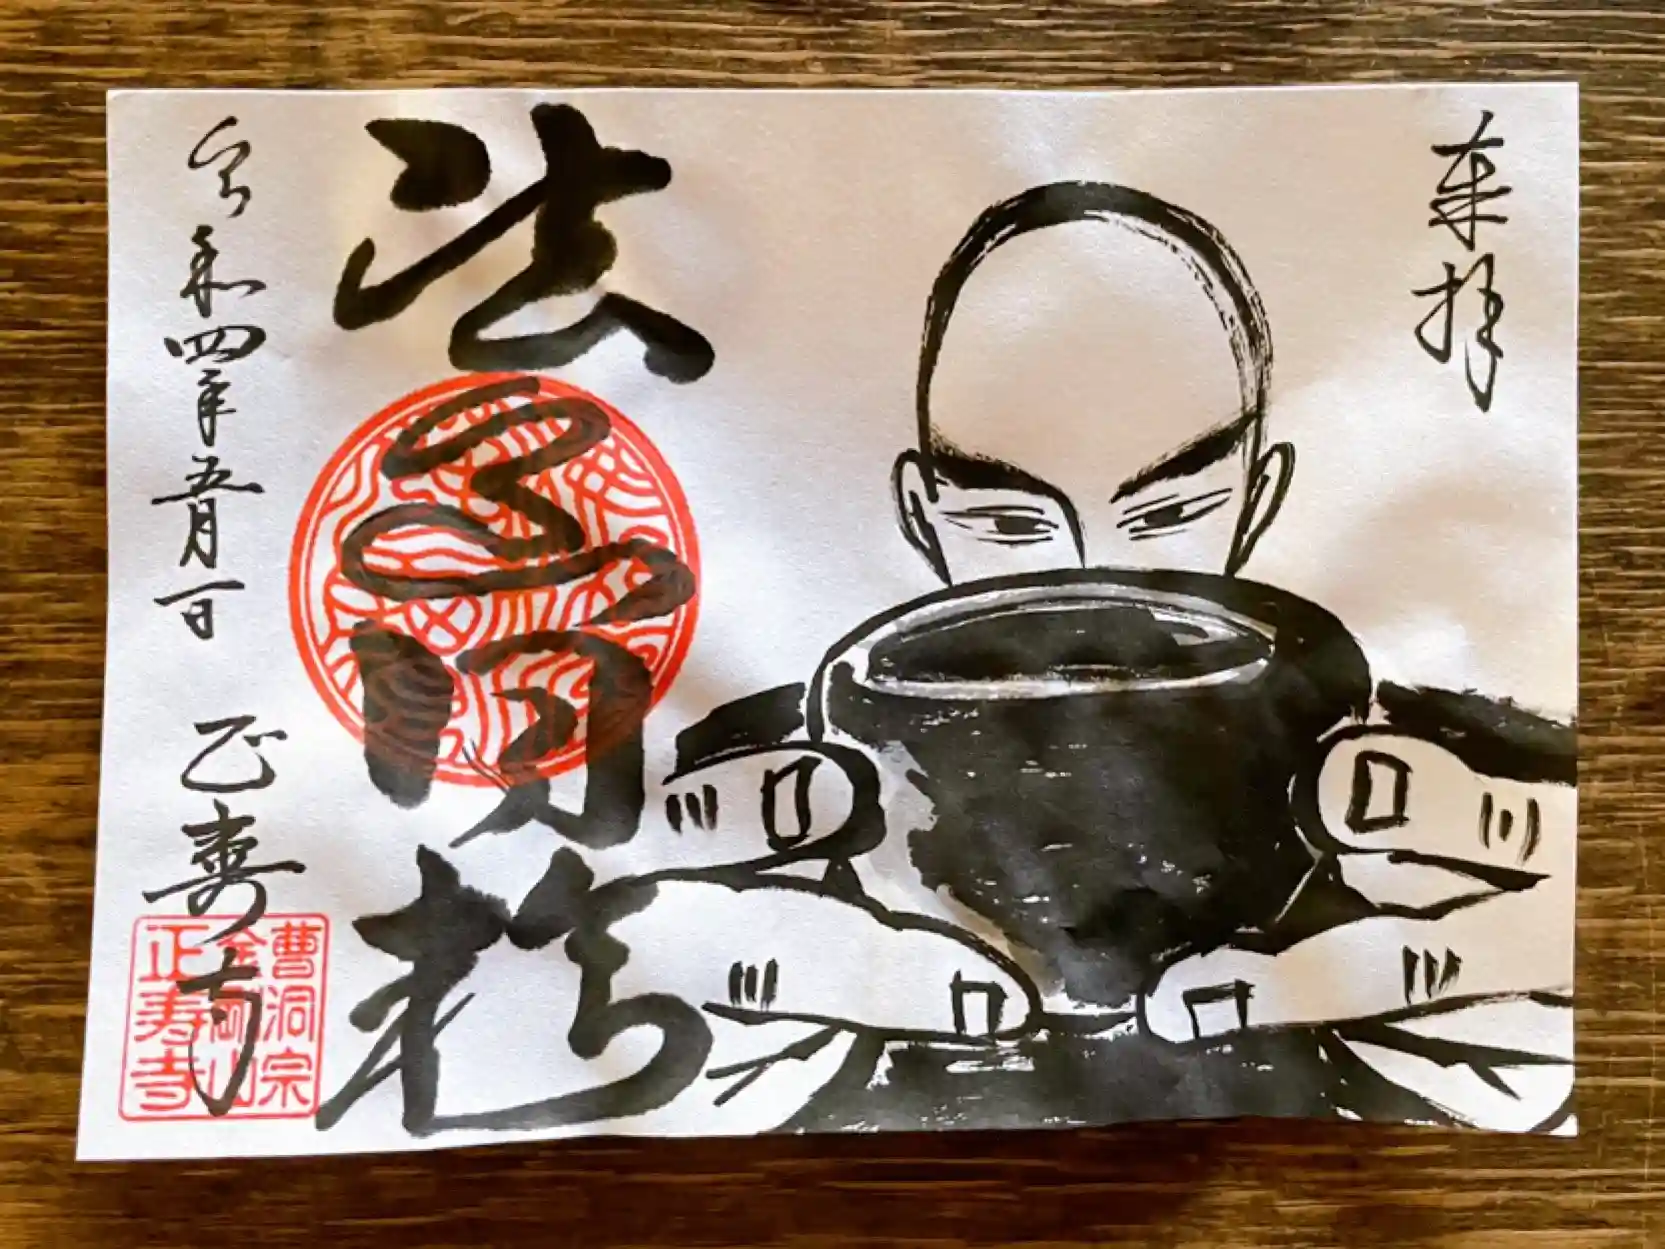 来拝
法
令和四年五月一日
正壽寺
曹洞宗
金剛山
正寿寺